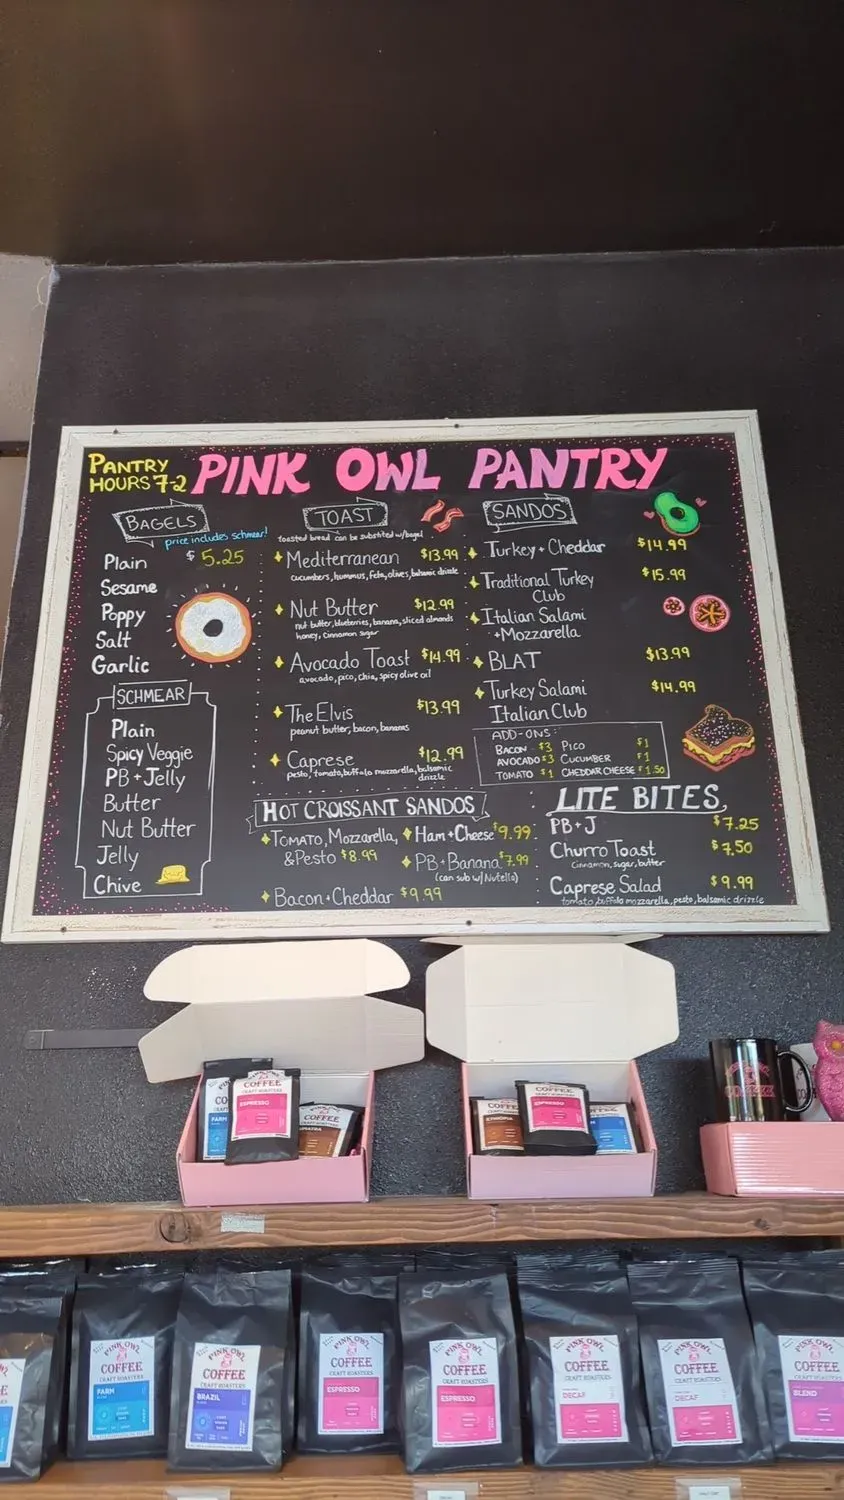 PANTRY
HOURS 7-2
PINK OWL PANTRY
BAGELS
price includes schmear!
$5.25
Plain
Sesame
Poppy
Salt
Garlic
SCHMEAR
Plain
Spicy Veggie
PB + Jelly
Butter
Nut Butter
Jelly
Chive
TOAST
toasted bread can be substited w/bagel
Mediterranean $13.99
cucumbers, hummus, feta, olives, balsamic drizzle
Nut Butter $12.99
nut butter, blueberries, banana, sliced almonds
honey, cinnamon sugar
Avocado Toast $14.99
avocado, pico, chia, spicy olive oil
The Elvis $13.99
peanut butter, bacon, bananas
Caprese $12.99
pesto, tomato, buffalo mozzarella, balsamic
drizzle
SANDOS
Turkey + Cheddar $14.99
Traditional Turkey $15.99
Club
Italian Salami
+ Mozzarella
BLAT $13.99
Turkey Salami $14.99
Italian Club
ADD-ONS:
BACON $3 PICO $1
AVOCADO $3 CUCUMBER $1
TOMATO $1 CHEDDAR CHEESE $1.50
HOT CROISSANT SANDOS
TOMATO, Mozzarella,
& Pesto $8.99
Ham + Cheese $9.99
PB + Banana $7.99
(can sub w/ Nutella)
Bacon + Cheddar $9.99
LITE BITES
PB + J $7.25
Churro Toast $7.50
Cinnamon, sugar, butter
Caprese Salad $9.99
tomato, buffalo mozzarella, pesto, balsamic drizzle
FARM
COFFEE
CRAFT ROASTERS
ESPRESSO
COFFEE
SUMATRA
ETHIOPIA
COFFEE
CRAFT ROASTERS
ESPRESSO
FARM
PINK OWL
COFFEE
CRAFT ROASTERS
FARM
PINK OWL
COFFEE
CRAFT ROASTERS
BRAZIL
PINK OWL
COFFEE
CRAFT ROASTERS
ESPRESSO
PINK OWL
COFFEE
CRAFT ROASTERS
ESPRESSO
PINK OWL
COFFEE
CRAFT ROASTERS
DECAF
PINK OWL
COFFEE
CRAFT ROASTERS
DECAF
PINK OWL
COFFEE
CRAFT ROASTERS
BLEND